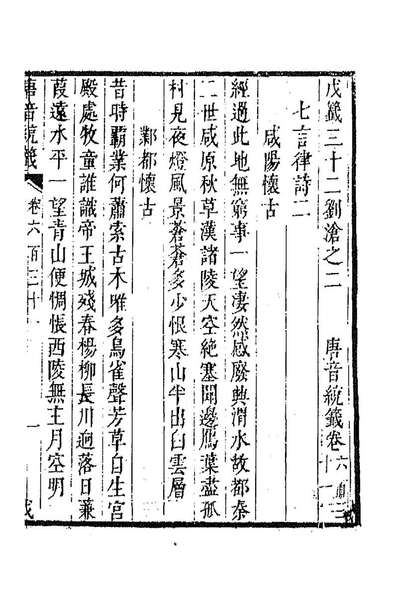 戊籤三十二劉滄之二　唐音統籤卷六
七言律詩二
咸陽懷古
經過此地無窮事一望淒然感廢興渭水故都秦
二世咸原秋草漢諸陵天空絕塞聞邊鴈葉盡孤
村見夜燈風景蒼蒼多少恨寒山半出白雲層
鄴都懷古
昔時霸業何蕭索古木唯多鳥雀聲芳草自生宮
殿處牧童誰識帝王城殘春楊柳長川迥落日蒹
葭遠水平一望青山便惆悵西陵無主月空明
唐音統籤　卷六百三十　一　戊